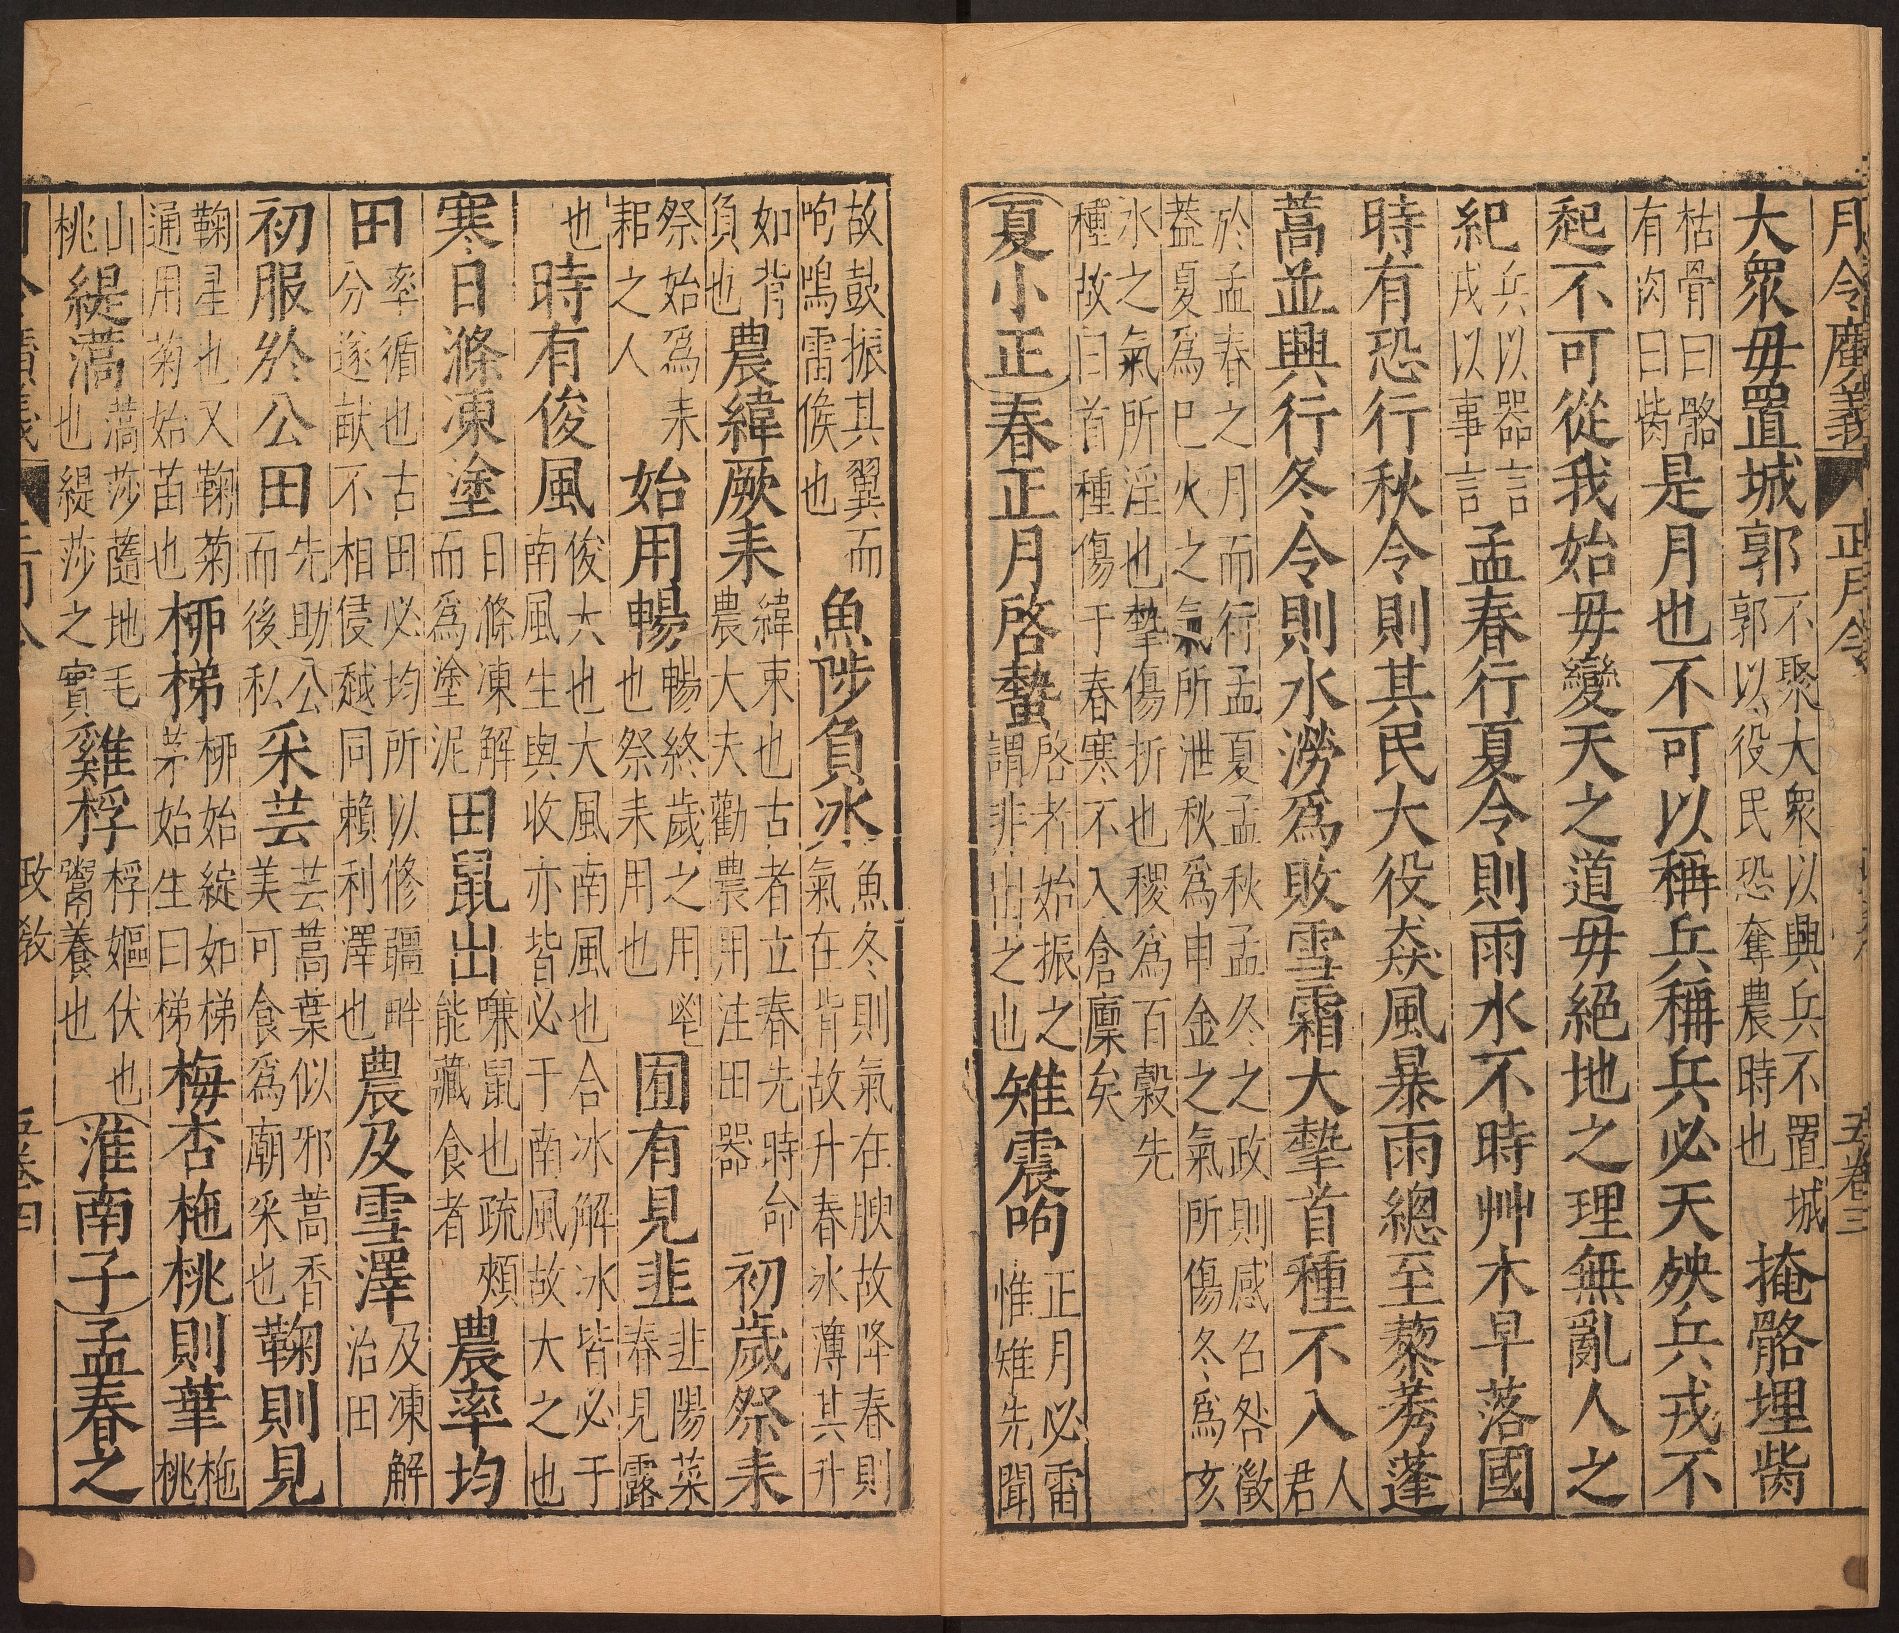 月令廣義 正月令 五卷三
大眾毋置城郭不聚大眾以興兵不置城郭以役民恐奪農時也掩骼埋胔
枯骨曰骼有肉曰胔是月也不可以稱兵稱兵必天殃兵戎不
起不可從我始毋變天之道毋絕地之理無亂人之
紀兵以器言戎以事言孟春行夏令則雨水不時艸木早落國
時有恐行秋令則其民大役猋風暴雨總至藜莠蓬
蒿並興行冬令則水潦爲敗雪霜大摯首種不入人君
於孟春之月而行孟夏孟秋孟冬之政則感召咎徵蓋夏爲巳火之氣所泄秋爲申金之氣所傷冬爲亥
水之氣所淫也摯傷折也稷爲百穀先種故曰首種傷于春寒不入倉廩矣
夏小正春正月啓蟄啓者始振之謂非出之也雉震呴正月必雷惟雉先聞
故鼓振其翼而呴鳴雷候也魚陟負冰魚冬則氣在腴故降春則氣在背故升春冰薄其升
如背負也農緯厥耒緯束也古者立春先時命農大夫勸農用注田器初歲祭耒
祭始爲耒耜之人始用暢暢終歲之用鬯也祭耒用也囿有見韭韭陽菜春見露
也時有俊風俊大也大風南風也合冰解冰皆必于南風生與收亦皆必于南風故大之也
寒日滌凍塗日滌凍解而爲塗泥田鼠出嗛鼠也疏頰能藏食者農率均
田率循也古田必均所以修疆畔分遂畝不相侵越同賴利澤也農及雪澤及凍解治田
初服於公田先助公而後私采芸芸蒿葉似邪蒿香美可食爲廟采也鞠則見
鞠星也又鞠菊通用菊始苗也柳梯柳始綻如梯茅始生曰梯梅杏杝桃則華杝桃
山桃緹薃薃莎蓆地毛也緹莎之實雞桴桴嫗伏也粥養也淮南子孟春之
政教 五卷四